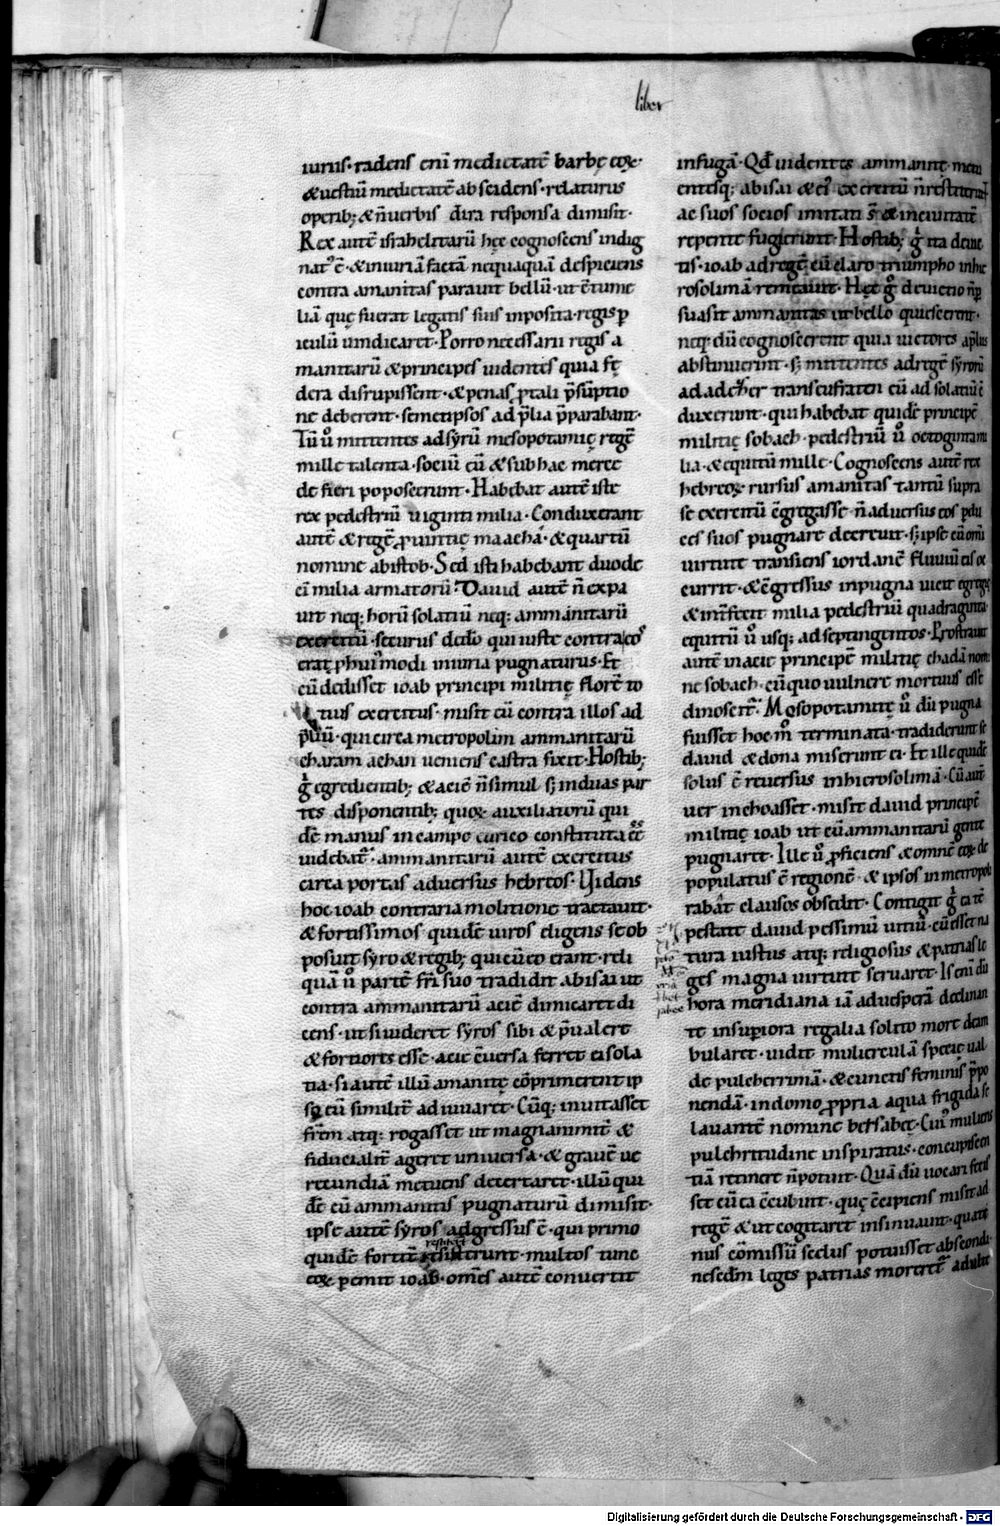 liber
iurus· radens eni medietatē barbę eoꝝ·
& uestiū medietatē abscidens· relaturus
operib; & ñ uerbis dira responsa dimisit·
Rex autē israhelitarū hęc cognoscens indig
natꝰ ē· & iniuriā factā nequaquā despiciens
contra amanitas parauit bellū· ut ctume
liā quę fuerat legatis suis inposita· regis ꝑ
iculū uindicaret· Porro necessarii regis a
manitarū & principes uidentes quia fę
dera disrupissent· & penas ꝓ tali p̄sūptio
ne deberent· semetipsos ad p̄lia p̄parabant·
Tū ů mittentes ad syrū mesopotamię regē
mille talenta· sociū eū & sub hac merce
de fieri poposcerunt· Habebat autē iste
rex pedestriū uiginti milia· Conduxerant
autē & regē ꝓuintię maacha· & quartū
nomine abistob· Sed isti habebant duode
cī milia armatorū· Dauid autē ñ expa
uit neq; horū solatiū neq; ammanitarū
exercitū· securus de dō qui iuste contra eos
erat ꝑ huiꝰmodi iniuria pugnaturus· Et
cū dedisset ioab principi militię florē to
tius exercitus· misit eū contra illos ad
p̄liū· qui circa metropolim ammanitarū
charam achan ueniens castra fixit· Hostib;
g̊ egredientib; & aciē ñ simul s; in duas par
tes disponentib; quoꝝ auxiliatorū qui
dē manus in campo eūrico constituta eē
uidebat̄· ammanitarū autē exercitus
circa portas aduersus hebreos· Uidens
hoc ioab contraria molitione tractauit·
& fortissimos quidē uiros eligens se ob
posuit syro & regib; qui cū eo erant· reli
quā ů partē fri suo tradidit abisai ut
contra ammanitarū aciē dimicaret di
cens· ut si uideret syros sibi & p̄ualere
& fortiores esse· acie cuersa ferret ei sola
tia· si autē illū amanitę cōprimerent ip
se cū similit̄ adiuuaret· Cūq; inuitasset
frēm atq; rogasset ut magnanimit̄ &
fiducialit̄ ageret uniuersa· & graue ue
recundiā metuens decertaret· illū qui
dē cū ammanitis pugnaturū dimisit·
ipse autē syros adgressus ē· qui primo
quidē fortit̄ resisterunt· multos tunc
eoꝝ pemit ioab· omēs autē conuertit
in fugā· Qd̄ uidentes ammanite· metu
entesq; abisai & eiꝰ exercitū ñ restiterunt
ac suos socios imitati s̄ & in ciuitatē
repente fugierunt· Hostib; g̊ ita deuic
tis· ioab ad regē cū claro triumpho in hie
rosolimā remeauit· Hęc g̊ deuictio ñ ꝑ
suasit ammanitas ut bello quiescerent·
neq; dū cognoscerent quia uictores aplius
abstinuerint· s; mittentes ad regē syrorū
ad adcher transeufraten eū ad solatiū c
duxerunt· qui habebat quidē principē
militię sobach· pedestriū ů octoginta mi
lia· & equitū mille· Cognoscens autē rex
hebreoꝝ rursus amanitas tantū supra
se exercitū cgregasse· ñ aduersus eos ꝑ du
ces suos pugnare decreuit· s; ipse cū omi
uirtute transiens iordanē fluuiū eis oc
currit· & cgressus in pugna uicit egregię
& int̄fecit milia pedestriū quadraginta·
equitū ů usq; ad septingentos· Prostrauit
autē in acie principē militię chadā nomi
ne sobach· cū quo uulnere mortuus esse
dinoscit̄· Mesopotamitę ů dū pugna
fuisset hoc m̊ terminata· tradiderunt se
dauid & dona miserunt ei· Et ille quidē
solus ē reuersus in hierosolimā· Cū autē
uer inchoasset· misit dauid principē
militię ioab ut cū ammanitarū gente
pugnaret· Ille ů ꝓficiens & omnē eoꝝ de
populatus ē regionē· & ipsos in metropoli
rabat clausos obsedit· Contigit g̊ ea tē
pestate dauid pessimū uitiū· cū esset na
tura iustus atq; religiosus & patrias le
ges magna uirtute seruaret· Is eni dū
hora meridiana iā ad uesperā declinan
te in superiora regalia solito more deam
bularet· uidit mulierculā specie ual
de pulcherrimā· & cunctis feminis p̄po
nendā· in domo ꝓpria aqua frigida se
lauantē nomine bersabeę· Cuiꝰ mulieris
pulchritudine inspiratus· concupiscen
tiā retinere ñ potuit· Quā dū uocari fecis
set cū ea ccubuit· quę ccipiens misit ad
regē & ut cogitaret insinuauit· quate
nus cōmissū scelus potuisset abscondi·
ne sedm leges patrias moreret̄ adulte